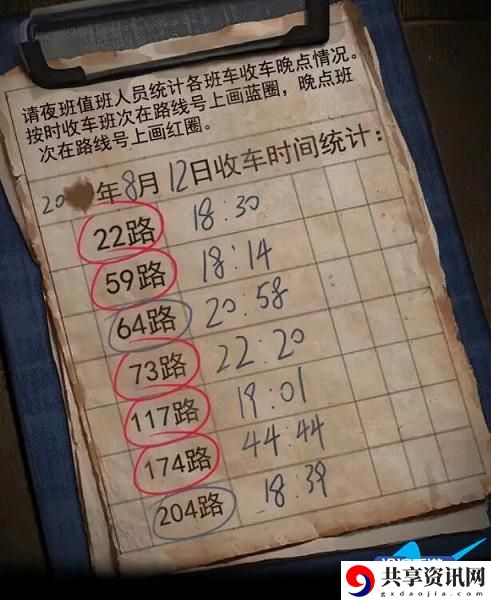 请夜班值班人员统计各班车收车晚点情况。
按时收车班次在路线号上画蓝圈，晚点班
次在路线号上画红圈。
20 年8月12日收车时间统计：
22路 18:30
59路 18:14
64路 20:58
73路 22:20
117路 19:01
174路 44:44
204路 18:39
共享资讯网
gxdaojia.com